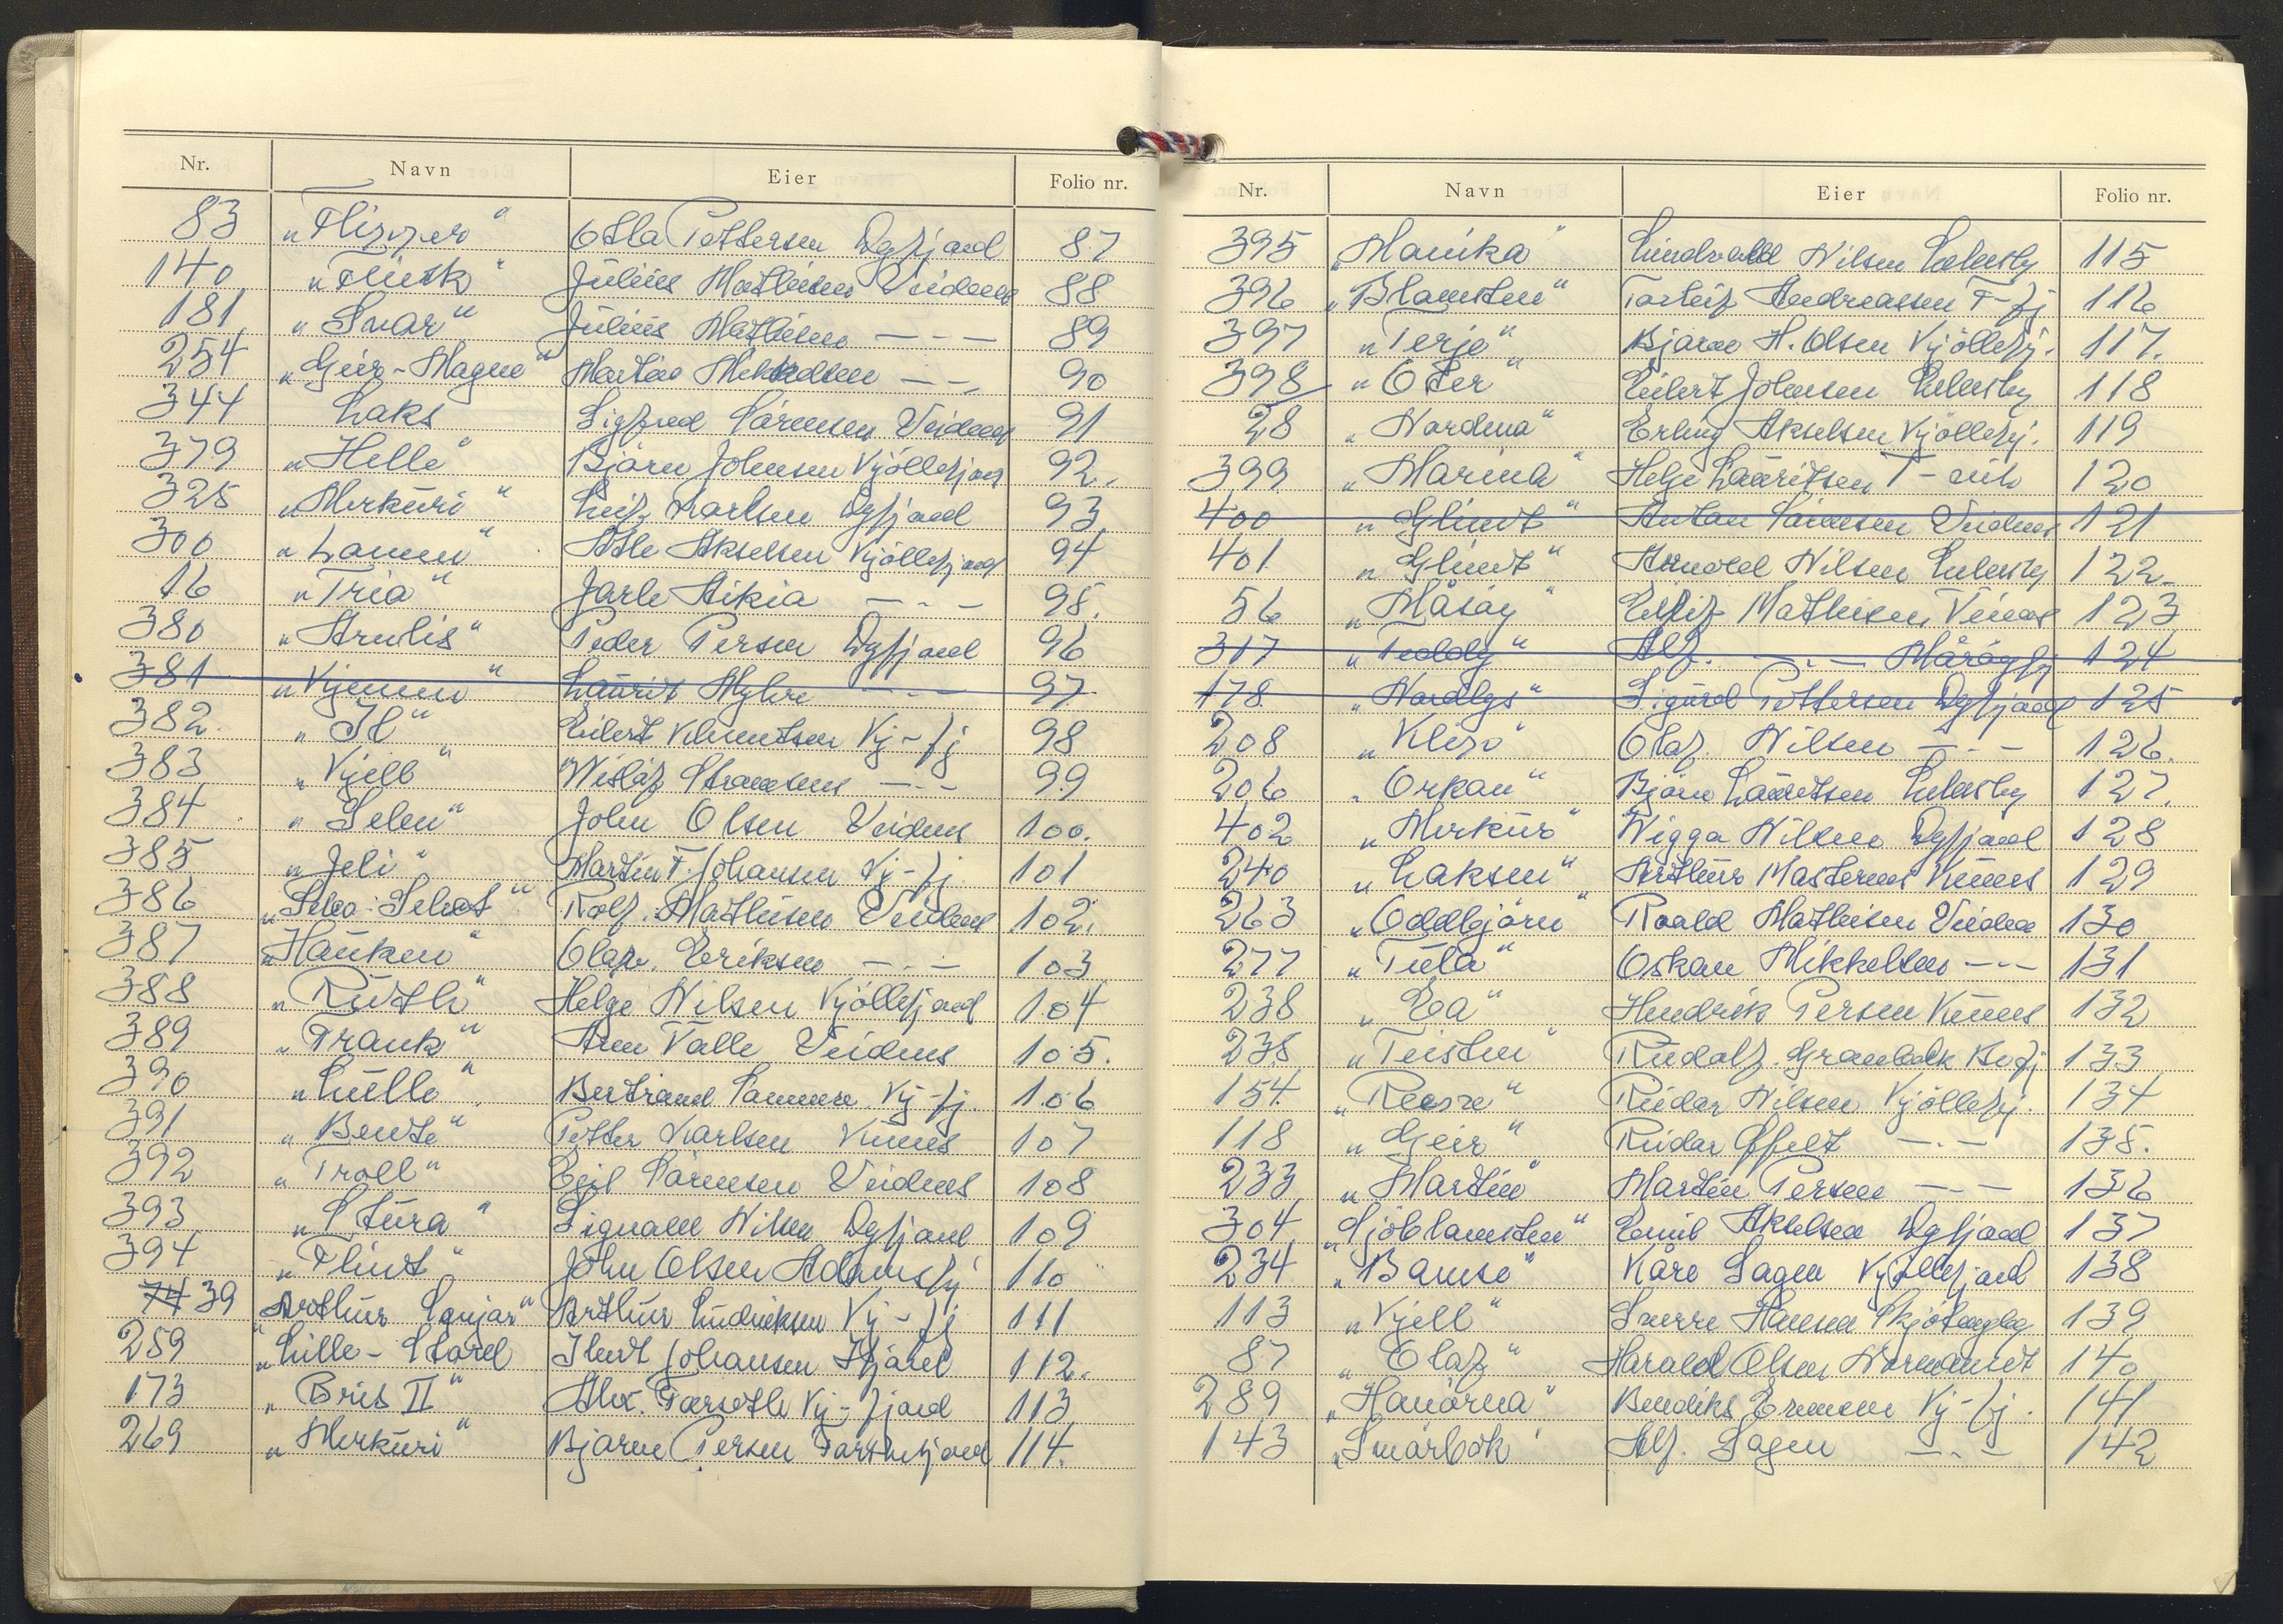 Nr. Navn Eier Folio nr.
83 „Flipper“ Otla Pettersen Dyfjord 87
140 „Flink“ Julius Mathisen Veidnes 88
181 „Snar“ Julius Mathisen — - — 89
254 „Geir-Magne“ Martin Mikkelsen — - — 90
344 Laks Sigfred Sörensen Veidnes 91
379 „Helle“ Bjørn Johnsen Kjøllefjord 92.
325 „Merkuri“ Leif Karlsen Dyfjord 93
300 „Lommen“ Atle Akselsen Kjøllefjord 94
16 „Tria“ Jarle Aikia — - — 95.
380 „Arnlis“ Peder Persen Dyfjord 96
381 „Kjemm“ Laurit Myhre — - — 97
382. „Il“ Eilert Klemetsen Kj-fj 98
383 „Kjell“ Wisløf — - — 99
384 „Selen“ John Olsen Veidnes 100.
385 „Jeli“ Martin F. Johansen Kj-fj. 101
386 Rolf Mathisen Veidnes 102.
387 „Hauken“ Olaf Eriksen — - — 103
388 „Ruth“ Helge Nilsen Kjøllefjord 104
389 „Frank“ Arne Valle Veidnes 105.
390 „Lullo“ Bertrand Kj-fj. 106
391 „Bente“ Petter Karlsen Kunes 107
392 „Troll“ Egil Sörensen Veidnes 108
393 „Stura“ Signald Nilsen Dyfjord 109
394 „Flint“ John Olsen Adamsfj 110
74 39 „Arthur Senjar“ Arthur Hendriksen Kj-fj 111
259 „Lille-Skarel Johansen Ifjord 112.
173 „Bris II“ Alex. Farseth Kj-fjord 113
269 „Merkuri“ Bjarne Persen Torskefjord 114.
Nr. Navn Eier Folio nr.
395 „Monika“ Lindvald Nilsen Lebesby 115
396 „Blomsten“ Torleif Andreassen T-fj 116
397 „Terje“ Bjarne H. Olsen Kjøllefj. 117.
398 „Oter“ Eilert Johnsen Lebesby 118
28 „Nordma“ Erling Akselsen Kjøllefj. 119
399 „Marina“ Helge Lauritsen 120
400 „Glimt“ Anton Sörensen Veidnes 121
401 „Glimt“ Arnold Nilsen Lebesby 122-
56 „Måsøy“ Eilif Mathisen 123
317 „Teddy“ Alf. — - — Måröyfj 124
178 „Nordlys“ Sigurd Pettersen Dyfjord 125
208 „Klipp“ Olaf Nilsen — - — 126.
206 „Orkan“ Bjørn Lauritsen Lebesby 127.
402 „Merkur“ Wigga Nilsen Dyfjord 128
240 „Laksen“ Arthur Masternes Kunes 129
263 „Oddbjørn“ Roald Mathisen Veidnes 130
277 „Tula“ Oskar Mikkelsen — - — 131
238 „Ea“ Hendrik Persen Kunes 132
235 „Teisten“ Rudolf Grønbakk Bofj 133
154 „Reisre“ Reidar Nilsen Kjøllefj. 134
118 „Geir“ Reidar Offelt — - — 135.
233 „Martin“ Martin Persen — - — 136
304 „Sjøblomsten“ Emil Akselsen Dyfjord 137
234 „Bamse“ Kåre Sagen Kjøllefjord 138
113 „Kjell“ Snerre Hansen Skjøtningbg 139
87 „Olaf“ Harald Olsen Normannvt 140
289 „Hanörna“ Bendiks Ernesen Kj-fj. 141
143 „Smörbök“ Alf. Sagen — - — 142